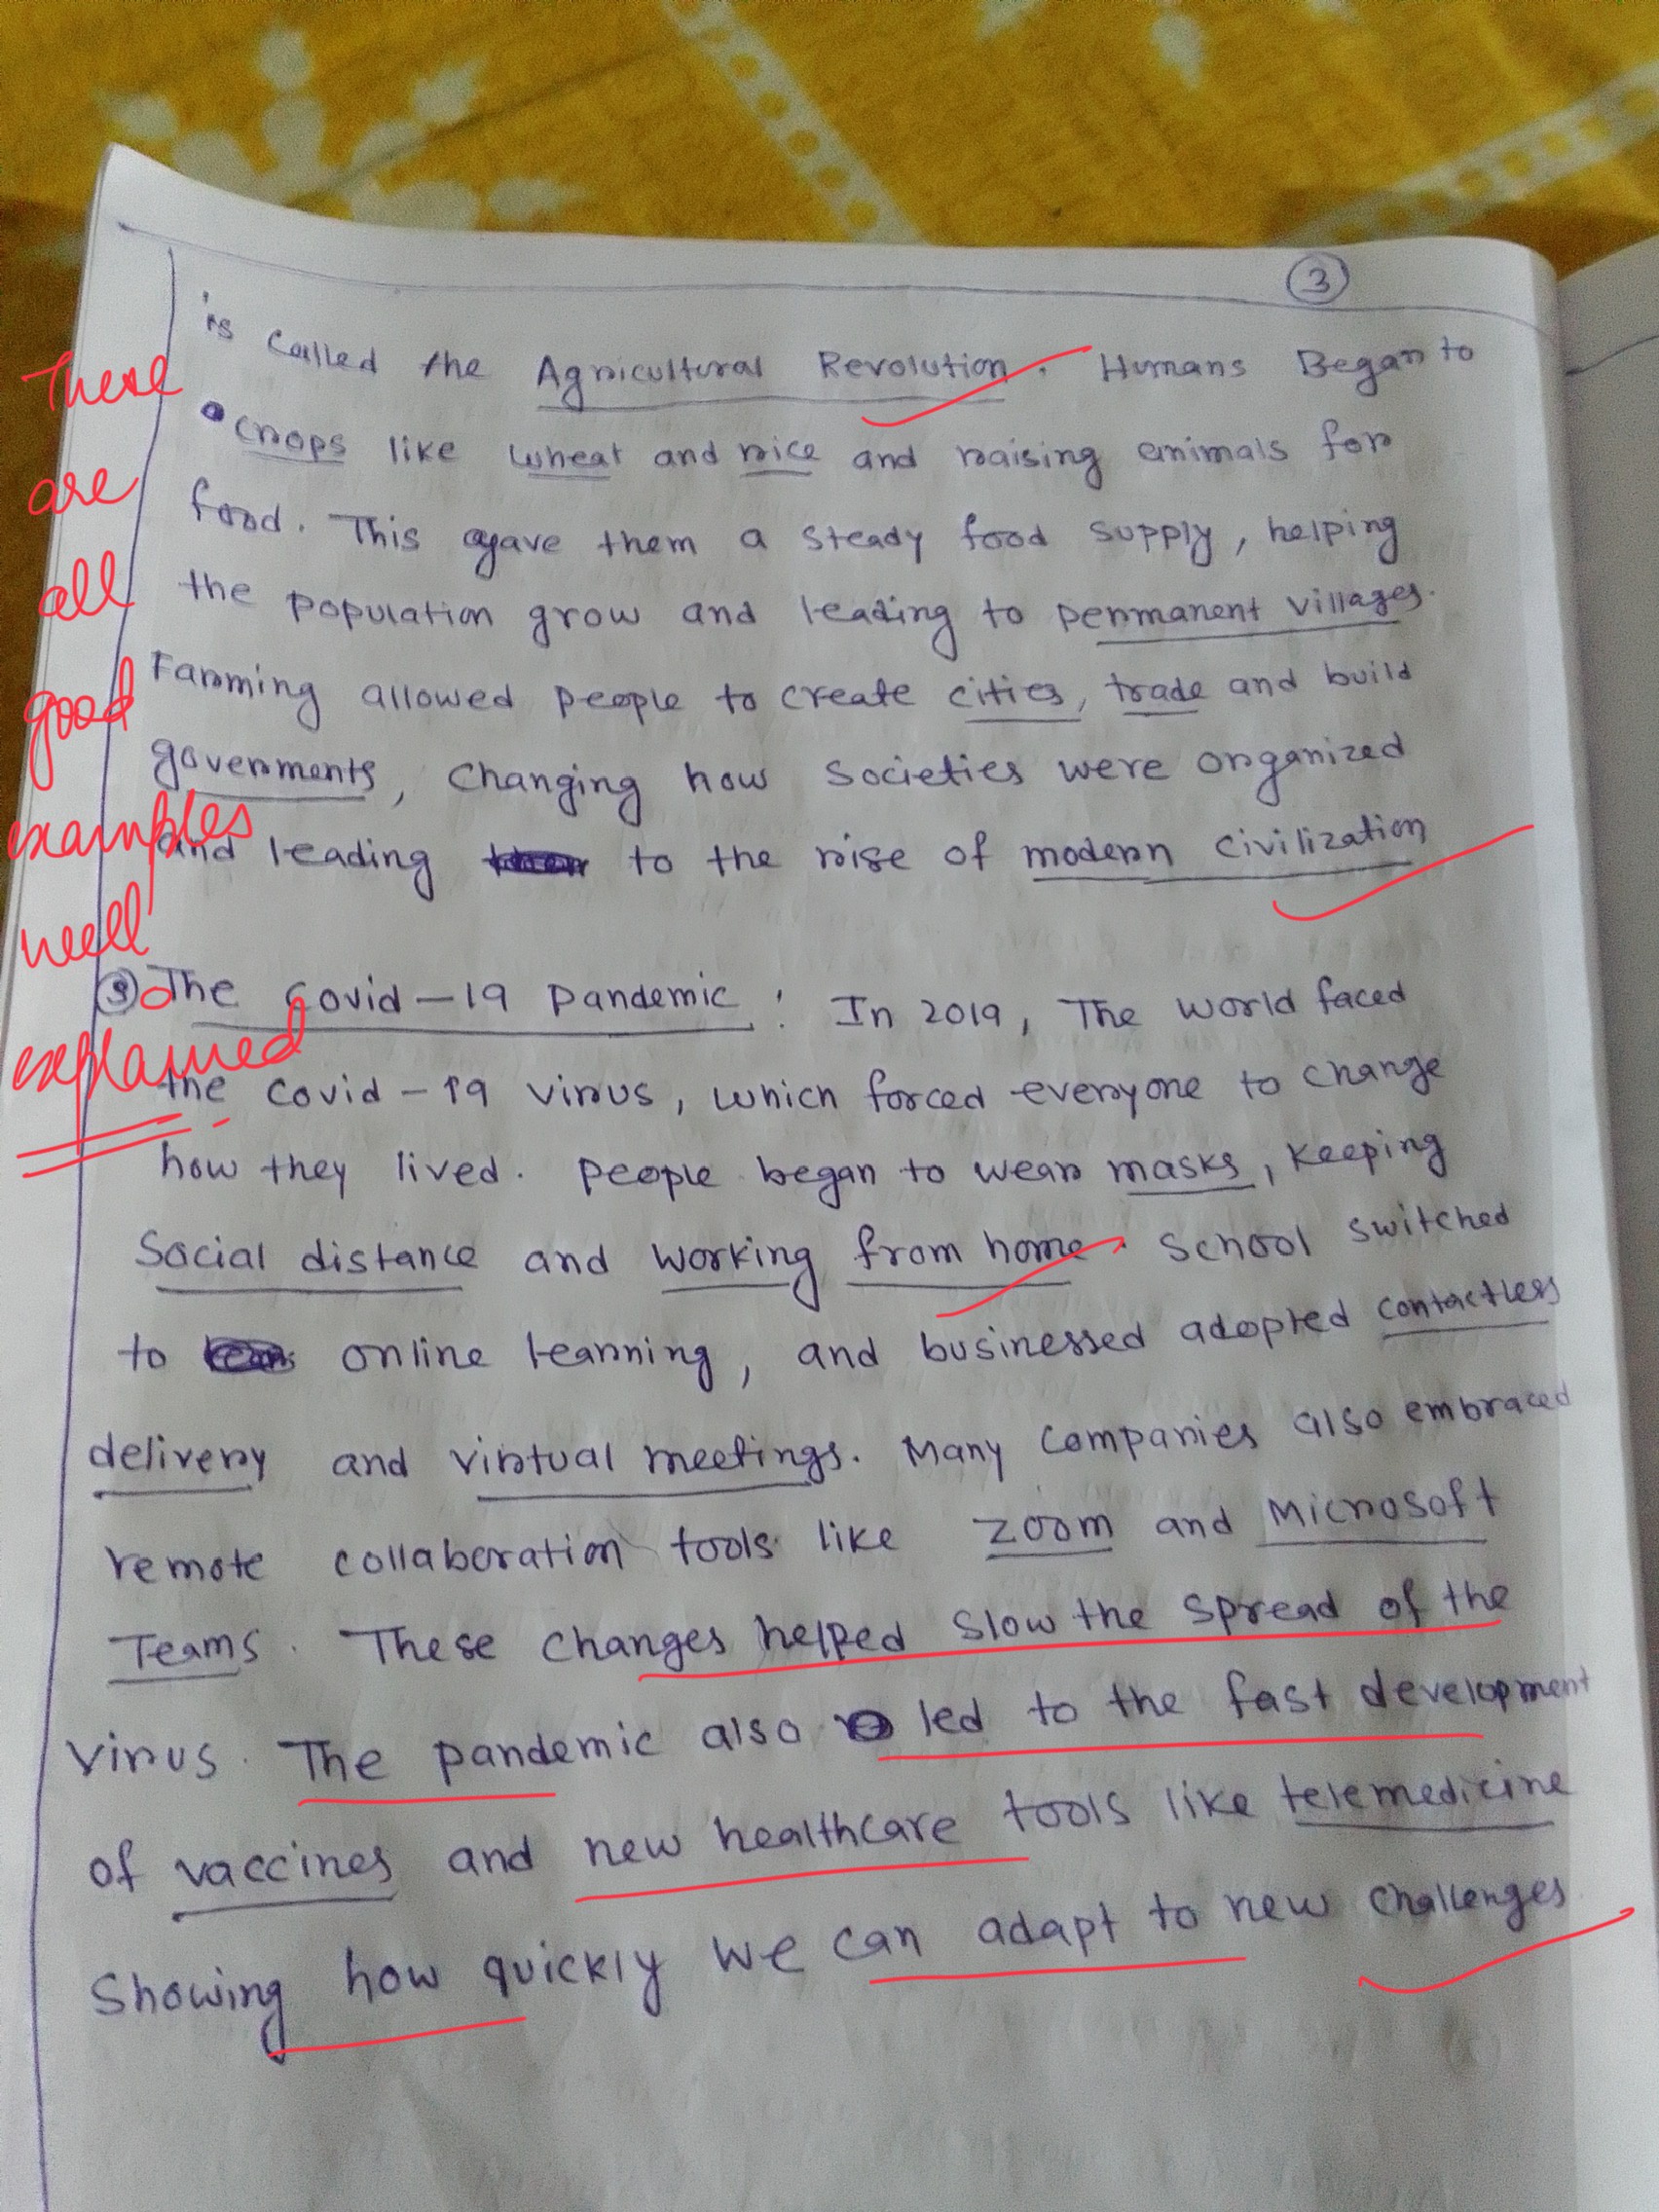 3
is called the Agricultural Revolution. Humans Began to
crops like wheat and rice and raising animals for
food. This gave them a steady food supply, helping
the population grow and leading to permanent villages.
Farming allowed people to create cities, trade and build
governments, changing how societies were organized
and leading to the rise of modern civilization
These
are
all
good
examples
well
explained
③ The Covid-19 Pandemic : In 2019, The world faced
the covid-19 virus, which forced everyone to change
how they lived. people began to wear masks, keeping
Social distance and working from home. School switched
to online learning, and businessed adopted contactless
delivery and virtual meetings. Many companies also embraced
remote collaboration tools like zoom and Microsoft
Teams. These changes helped slow the spread of the
virus. The pandemic also led to the fast development
of vaccines and new healthcare tools like telemedicine
Showing how quickly we can adapt to new challenges